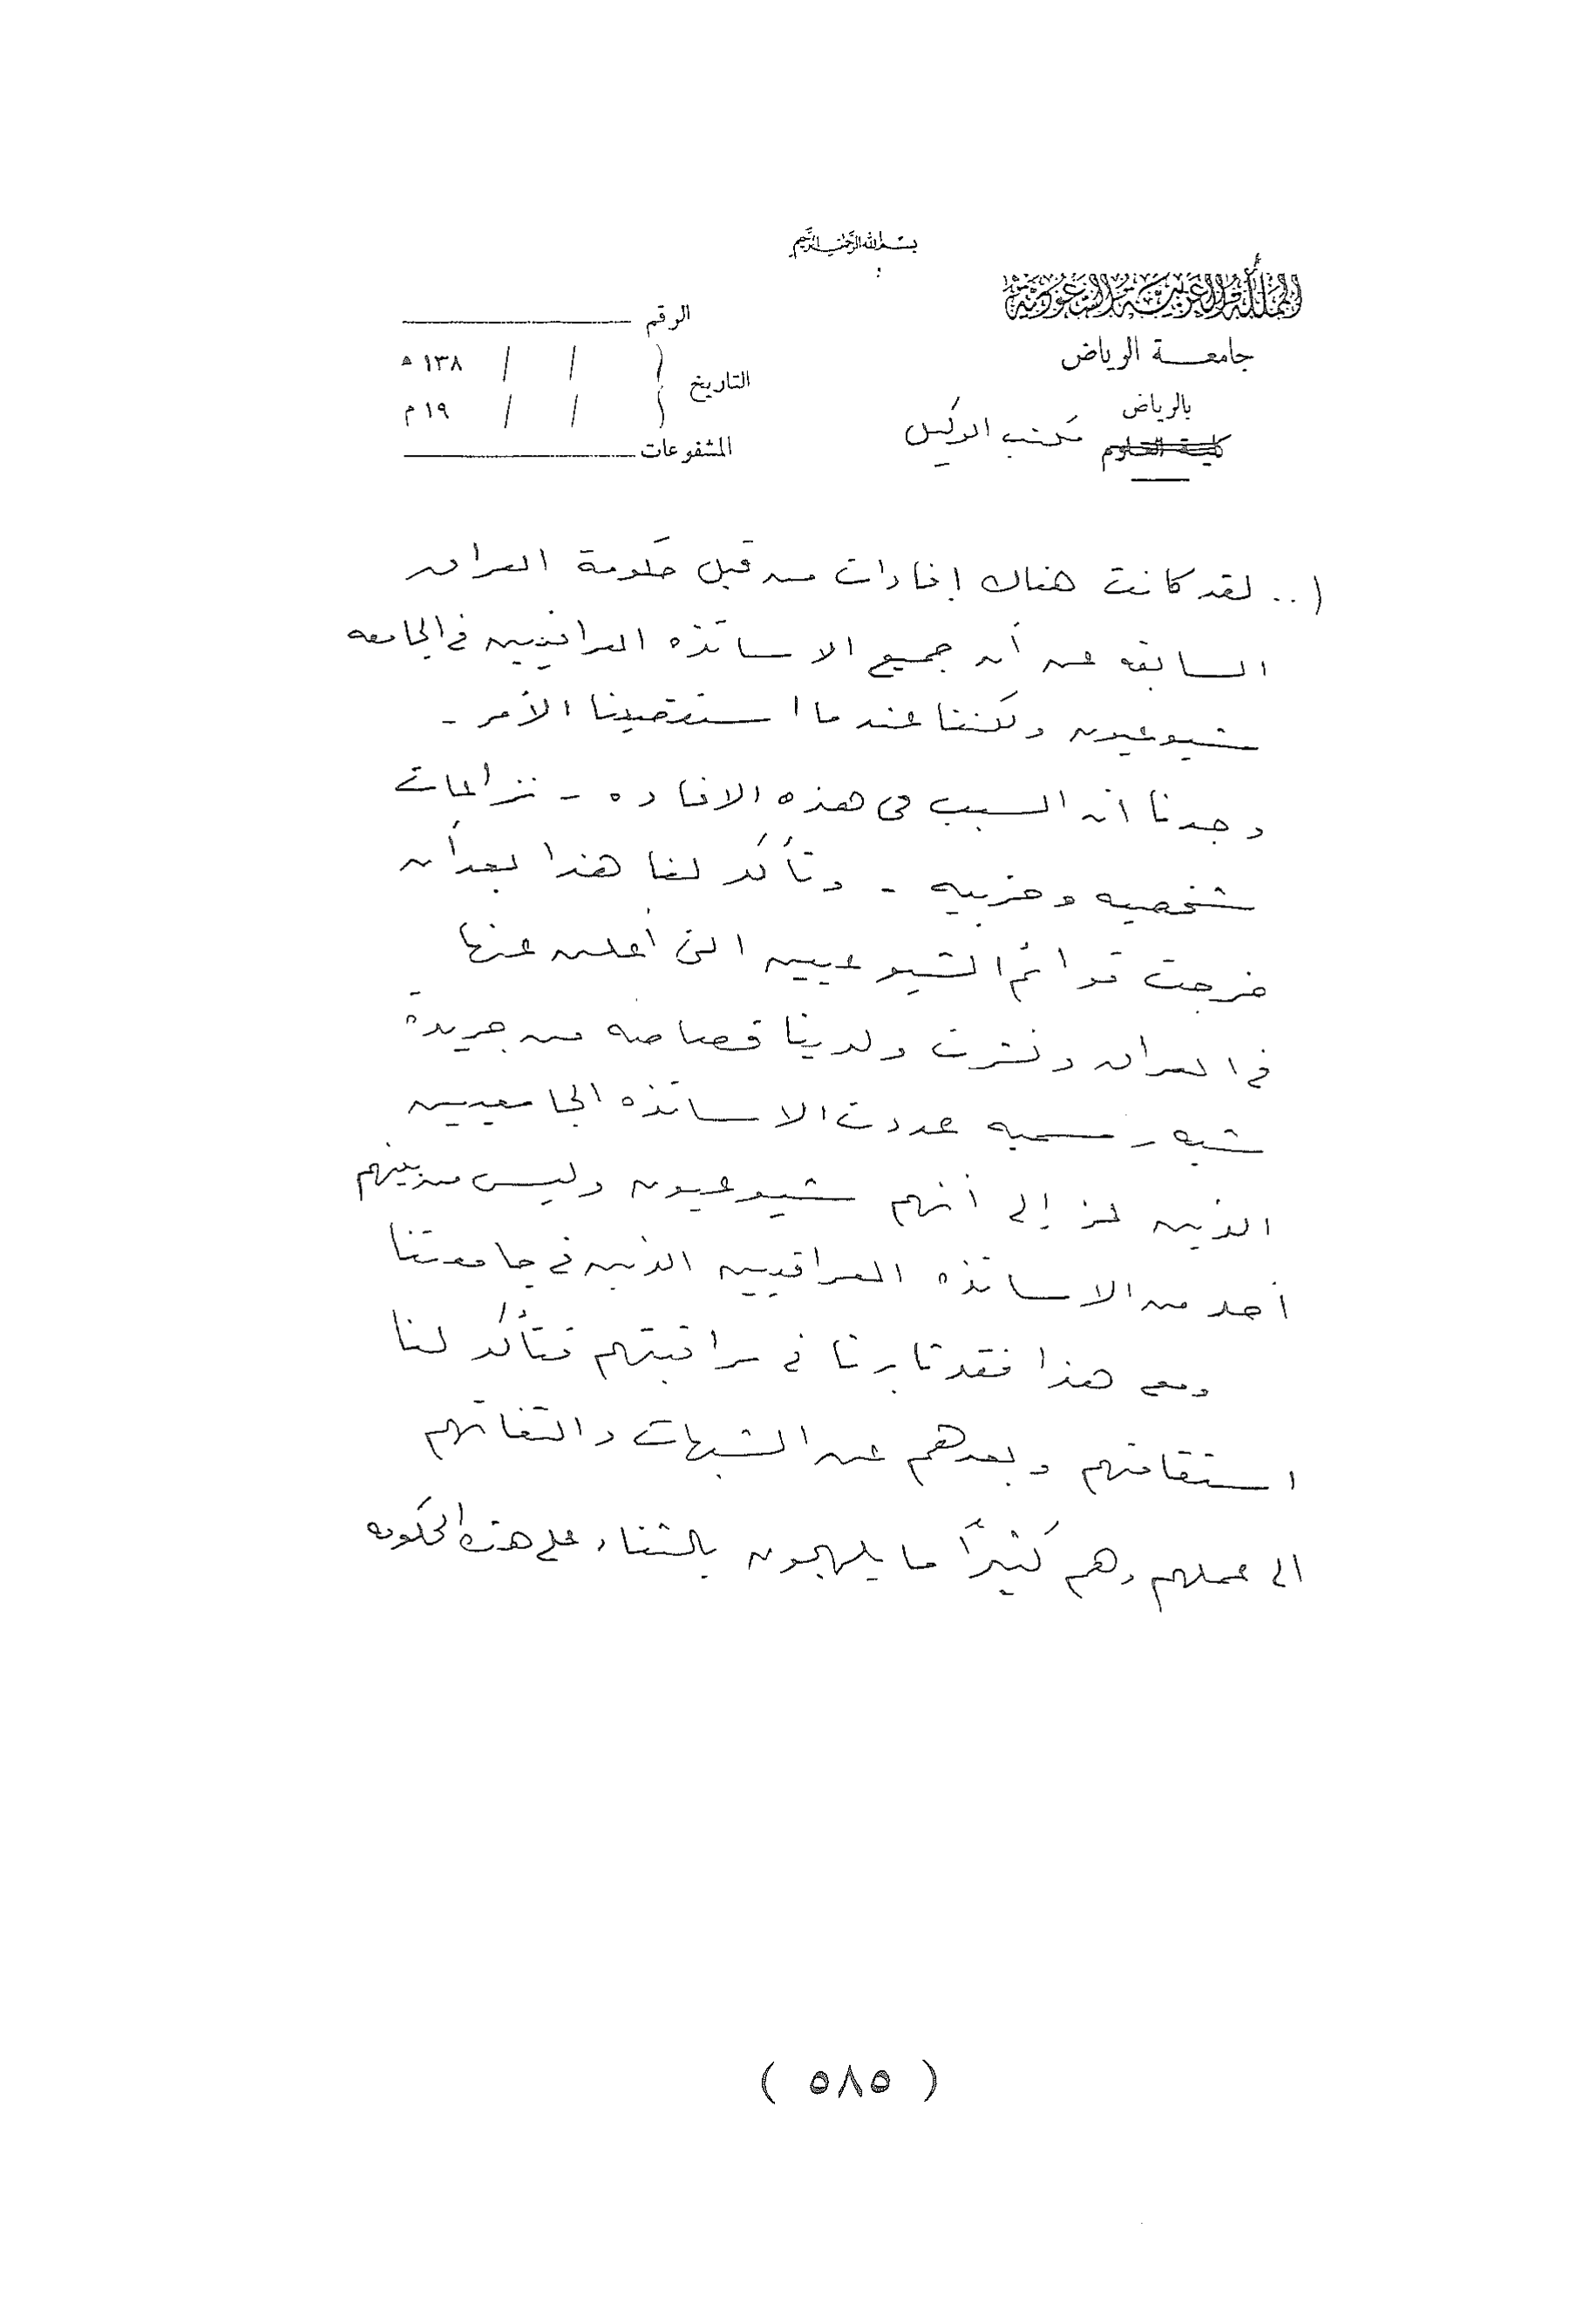 بسم الله الرحمن الرحيم
المملكة العربية السعودية
جامعة الرياض
بالرياض
كلية العلوم مكتب الوكيل
الرقم
التاريخ / / ١٣٨ ه
/ / ١٩ م
المشفوعات
١.. لقد كانت هناك إفادات من قبل حكومة العراق
السابقه عن أن جميع الاساتذه العراقيين في الجامعه
شيوعيون ولكننا عندما استقصينا الأمر -
وجدنا ان السبب في هذه الافاده - نزاعات
شخصيه وحزبيه - وتأكد لنا هذا بعد أن
خرجت قوائم الشيوعيين التي أعلن عنها
في العراق ونشرت ولدينا قصاصه من جريدة
شبه رسميه عددت الاساتذه الجامعيين
الذين لمز إلى أنهم شيوعيون وليس من بينهم
أحد من الاساتذه العراقيين الذين في جامعتنا
ومع هذا فقد ثابرنا في مراقبتهم فتأكد لنا
استقامتهم وبعدهم عن الشبهات والتفاتهم
الى عملهم وهم كثيرًا ما يلهجون بالثناء على هذه الحكومه
( ٥٨٥ )